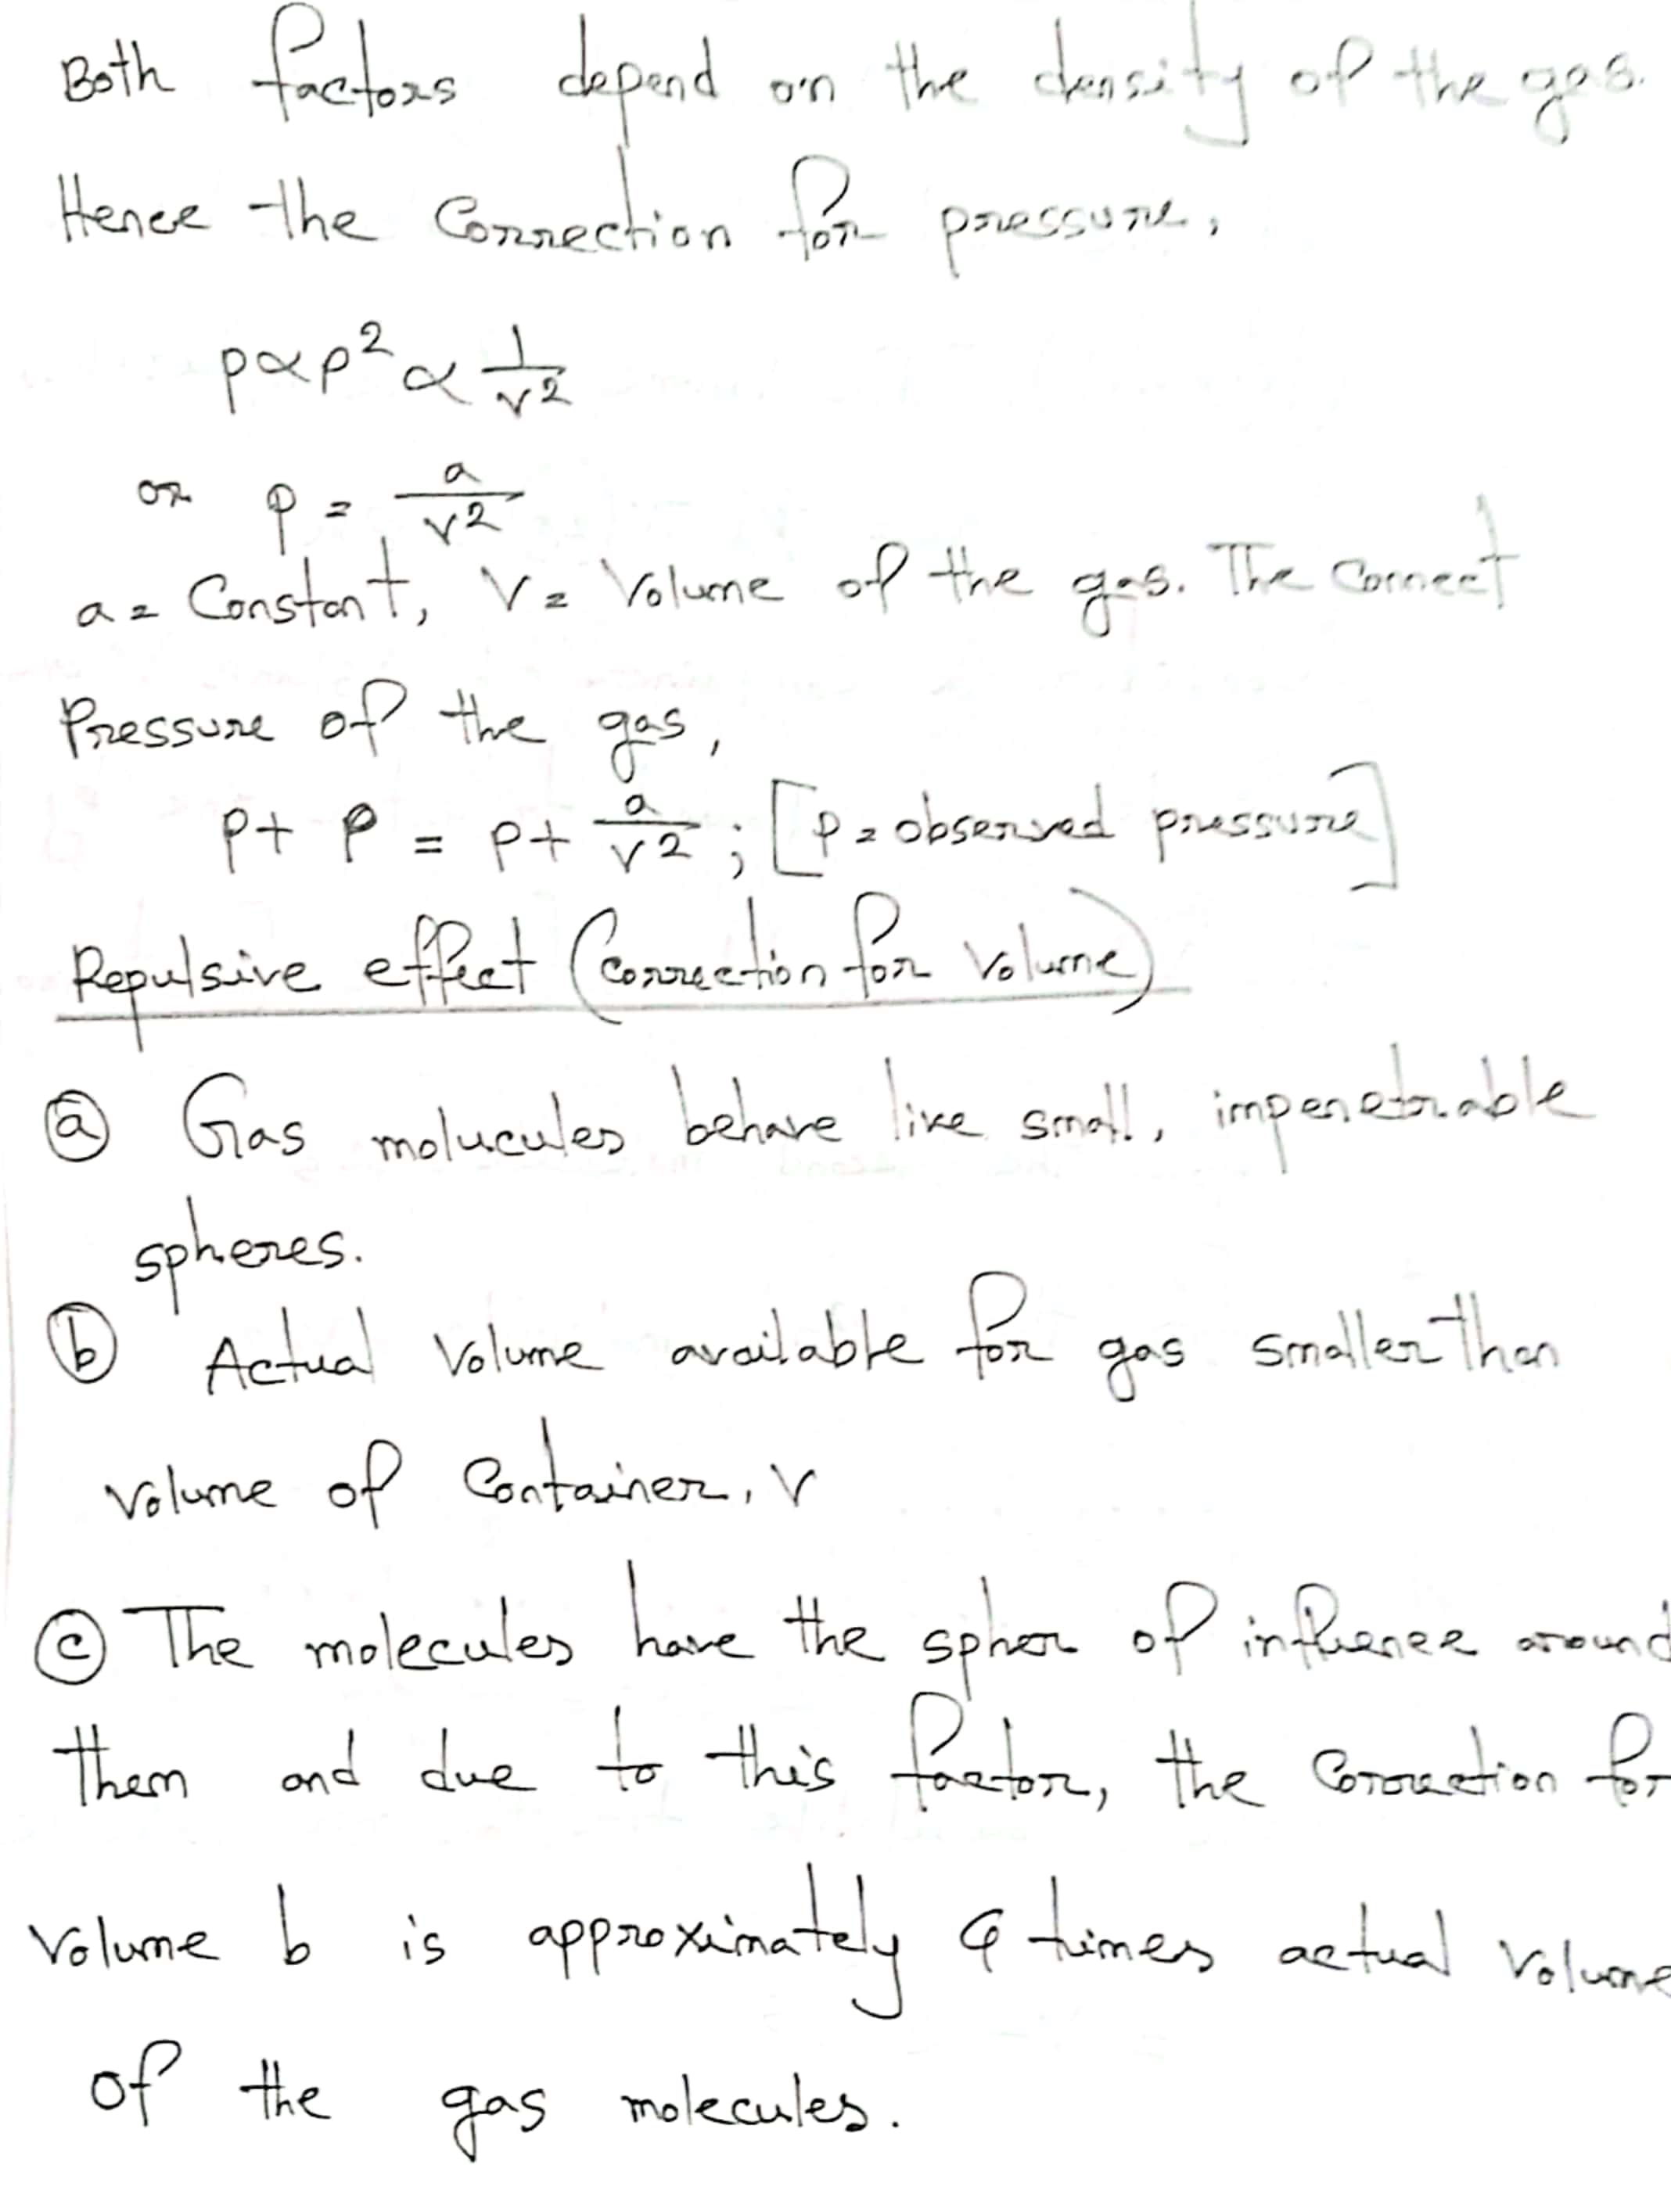 Both factors depend on the density of the gas.
Hence the Correction for pressure,
p∝ρ² ∝ 1/V²
or p = a/V²
a = Constant, V = Volume of the gas. The Correct
Pressure of the gas,
P + p = P + a/V² ; [P = observed pressure]
Repulsive effect (Correction for Volume)
ⓐ Gas molucules behave like small, impenetrable
spheres.
ⓑ Actual Volume available for gas smaller than
volume of Container, V
ⓒ The molecules have the spher of influence around
them and due to this factor, the Correction for
volume b is approximately 4 times actual volume
of the gas molecules.